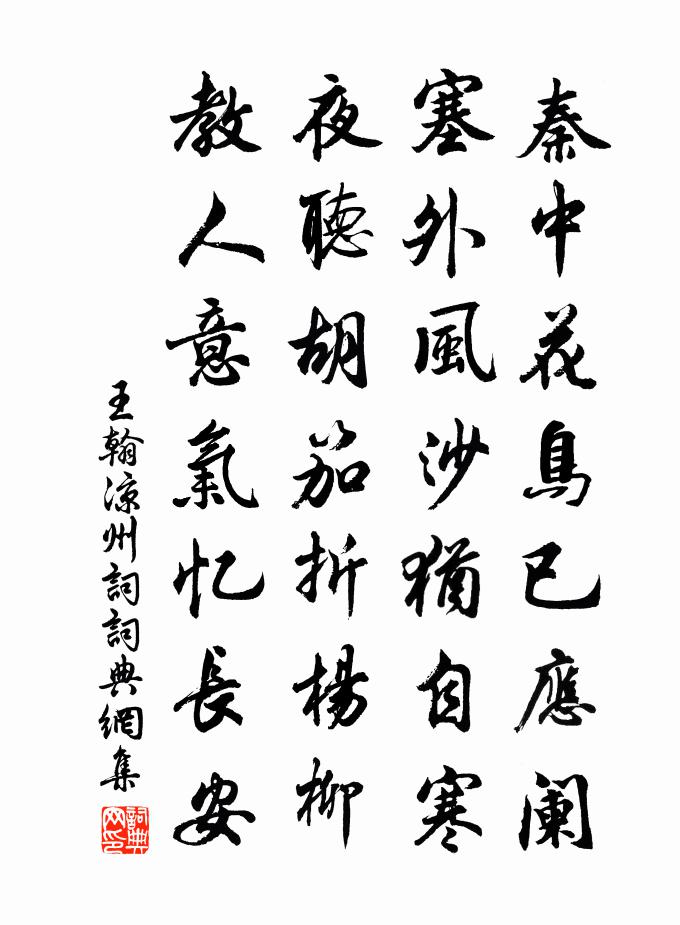 秦中花鳥已應闌
塞外風沙猶自寒
夜聽胡笳折楊柳
教人意氣忆長安
王翰凉州詞詞典網集
詞典网印